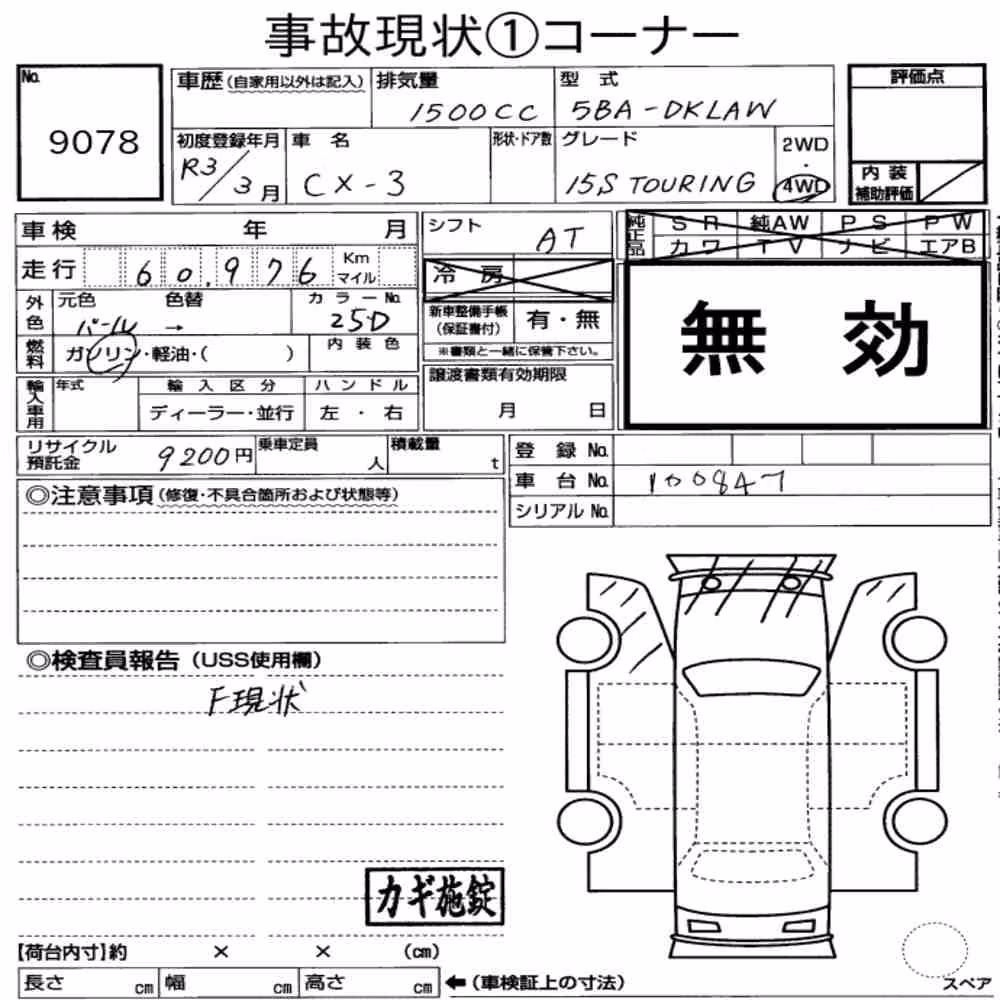 事故現状①コーナー
No. 9078
車歴(自家用以外は記入) 排気量 1500CC 型式 5BA-DKLAW 評価点
初度登録年月 R3/3月 車名 CX-3 形状・ドア数 グレード 15S TOURING 2WD・4WD
内装補助評価
車検 年 月 シフト AT 純正品 SR 純AW PS PW
カワ TV ナビ エアB
走行 60,976 Km マイル 冷房
外色 元色 パール → 色替 カラーNo. 25D
新車整備手帳(保証書付) 有・無
※書類と一緒に保管下さい。
無効
燃料 ガソリン・軽油・( ) 内装色
輸入車用 年式 輸入区分 ハンドル
ディーラー・並行 左・右
譲渡書類有効期限
月 日
リサイクル預託金 9200円 乗車定員 人 積載量 t
登録No.
車台No. 100847
シリアルNo.
◎注意事項(修復・不具合箇所および状態等)
◎検査員報告(USS使用欄)
F現状
カギ施錠
【荷台内寸】約 × × (cm)
長さ cm 幅 cm 高さ cm ←(車検証上の寸法)
スペア